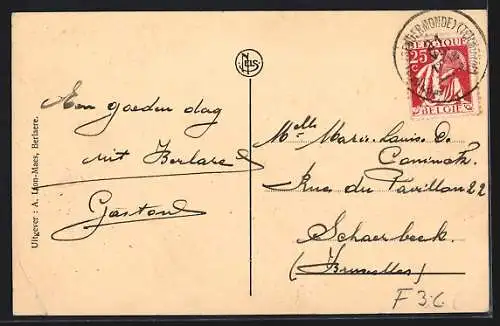 Een goeden dag
uit Berlare
Gaston
Uitgever : A. Léon-Maes, Berlaere.
NELS
(DENDERMONDE) (TERMONDE)
BELGIQUE
25
BELGIË
Melle Marie-Louise De
Caninck.
Rue du Pavillon 22
Schaerbeek.
(Bruxelles)
F 3.6